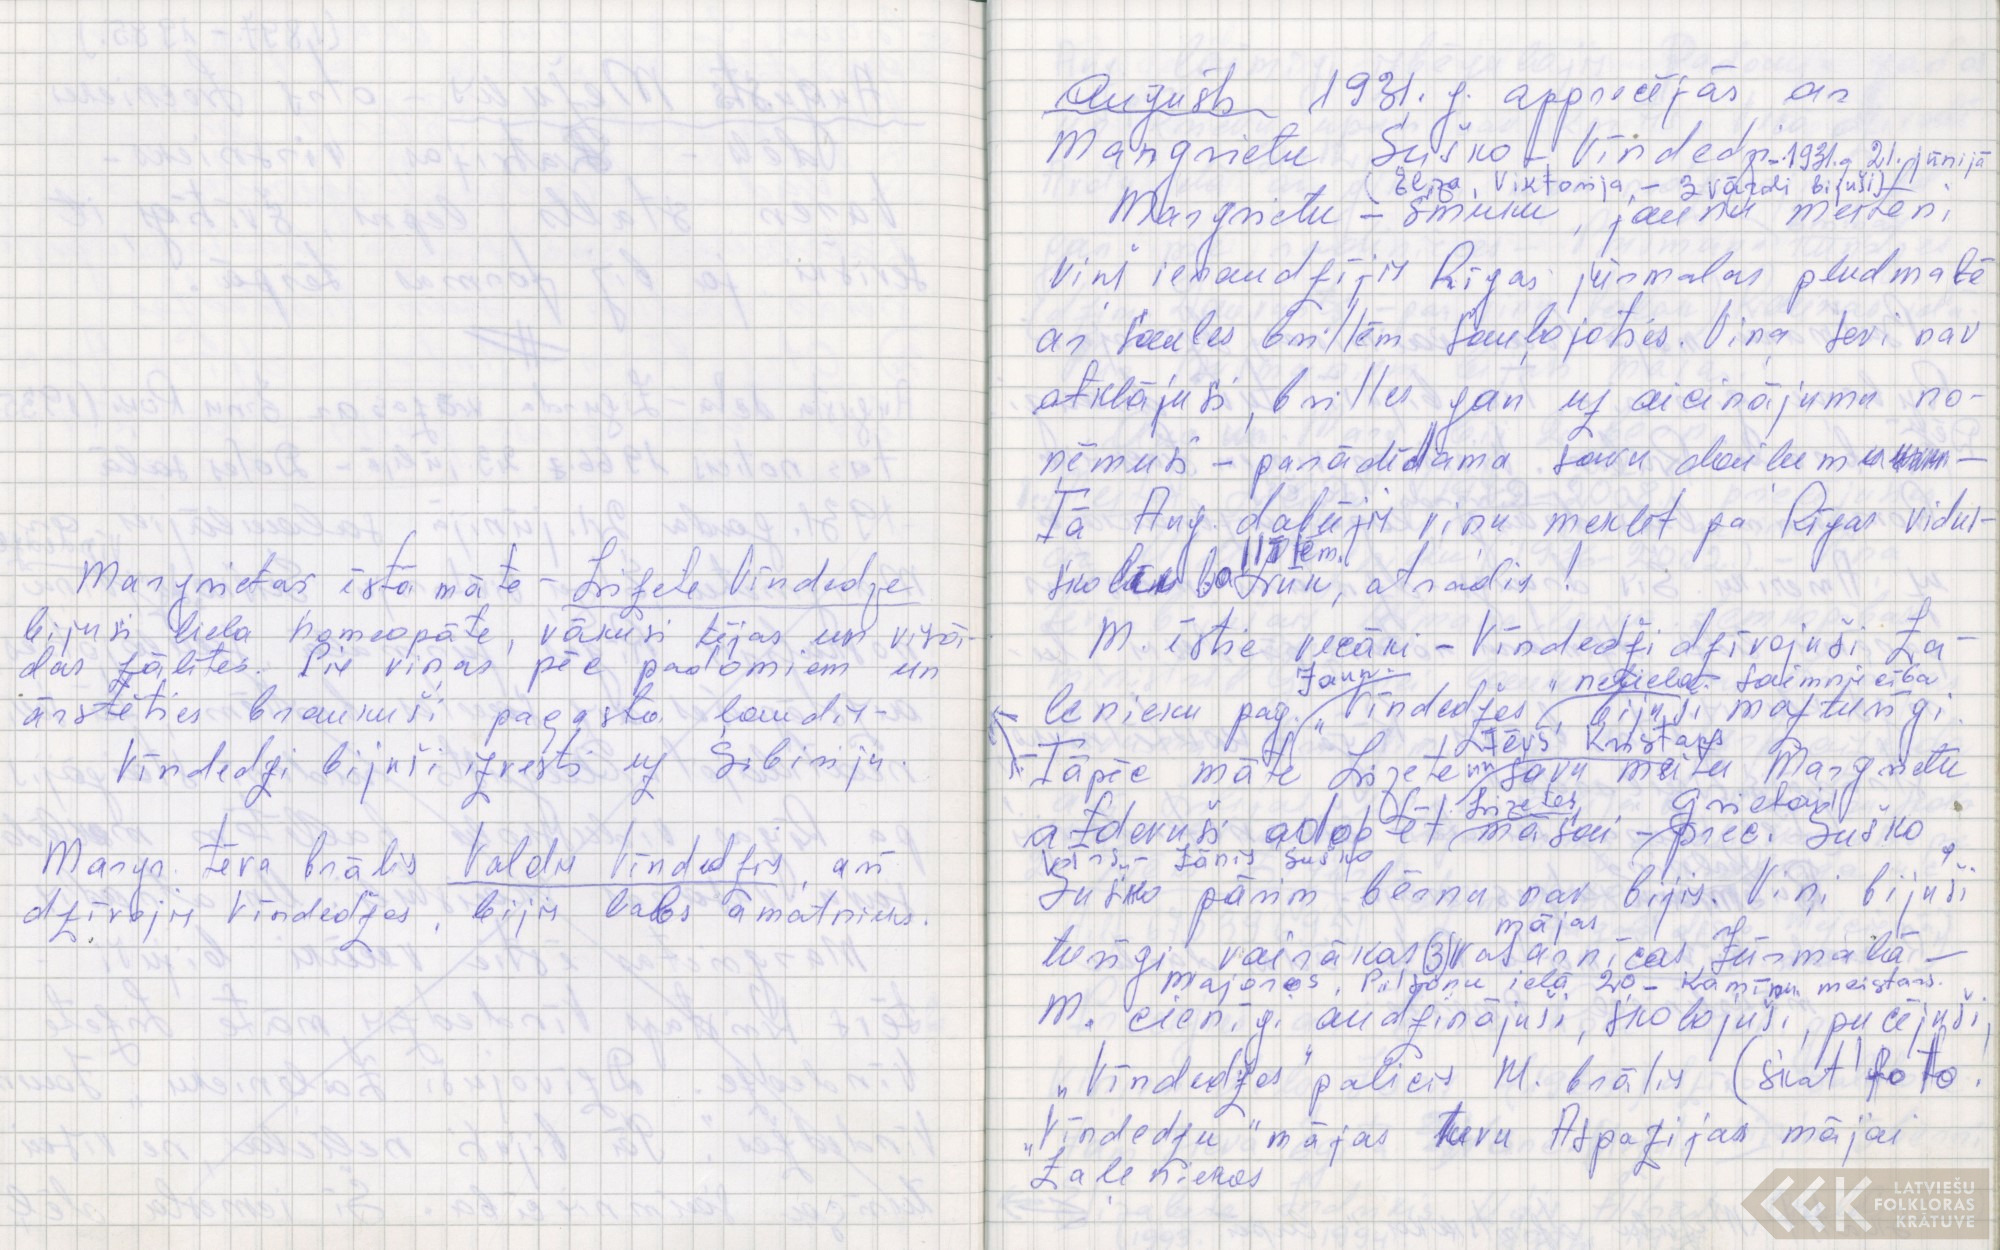 Margrietas īstā māte - Lizete Vīndedze
bijusi liela homeopāte, vākusi tējas un visā-
das zālītes. Pie viņas pēc padomiem un
ārstēties braukuši pagasta ļaudis -
Vīndedzi bijuši izvesti uz Sibīriju.
Margr. tēva brālis Valdis Vīndedzis, arī
dzīvojis Vīndedzes, bijis labs amatnieks.
Augusts 1931. g. apprecējās ar
Margrietu Suško - Vīndedzi - 1931. g 21. jūnijā
(Elza, Viktorija, - 3 vārdi bijuši)
Margrietu - smuku, jaunu meiteni
viņš ieraudzījis Rīgas jūrmalas pludmalē
ar saules brillēm sauļojoties. Viņa sevi nav
atklājusi, brilles gan uz aicinājumu no-
ņēmusi - parādīdama savu dailumu -
Tā Aug. dabūjis viņu meklēt pa Rīgas vidus-
skolām, atradis!
M. īstie vecāki - Vīndedži dzīvojuši Za-
Jaun- "neliela saimniecība
ļenieku pag. "Vīndedžes", bijuši mazturīgi.
Tēvs Kristaps
Tāpēc māte Lizete un savu meitu Margrietu
Lizetes Grietai
atdevuši adoptēt māsai - prec. Suško.
vīrs - Jānis Suško
Suško pārim bērnu nav bijis. Viņi bijuši
mājas
turīgi vairākas (3) vasarnīcas Jūrmalā -
Majoros, Pilsoņu ielā 20 - Kamīnu meistars.
M. cienīgi audzinājuši, skolojuši, pucējuši,
"Vīndedžes" palicis M. brālis (skat foto.
"Vīndedžu" mājas tuvu Aspazijas mājai
Zaļeniekos
LATVIEŠU
FOLKLORAS
KRĀTUVE